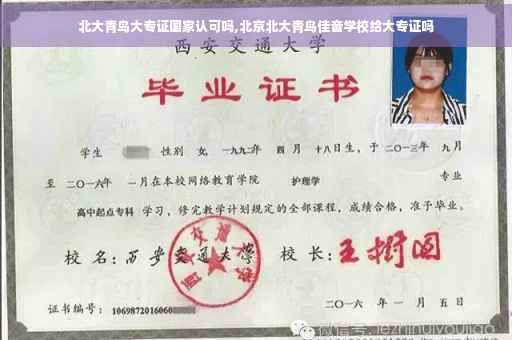 北大青鸟大专证国家认可吗,北京北大青鸟佳音学校给大专证吗
西安交通大学
毕业证书
学生 性别 女, 一九九二年 四月 十八日生, 于二〇一三年 九月
至 二〇一六年 一月在本校网络教育学院 护理学 专业
高中起点专科 学习, 修完教学计划规定的全部课程, 成绩合格, 准予毕业。
校名: 西安交通大学 校长: 王树国
西安交通大学
证书编号: 1069872016060
二〇一六年 一月 五日
微信号: jiezhinuyoujiao